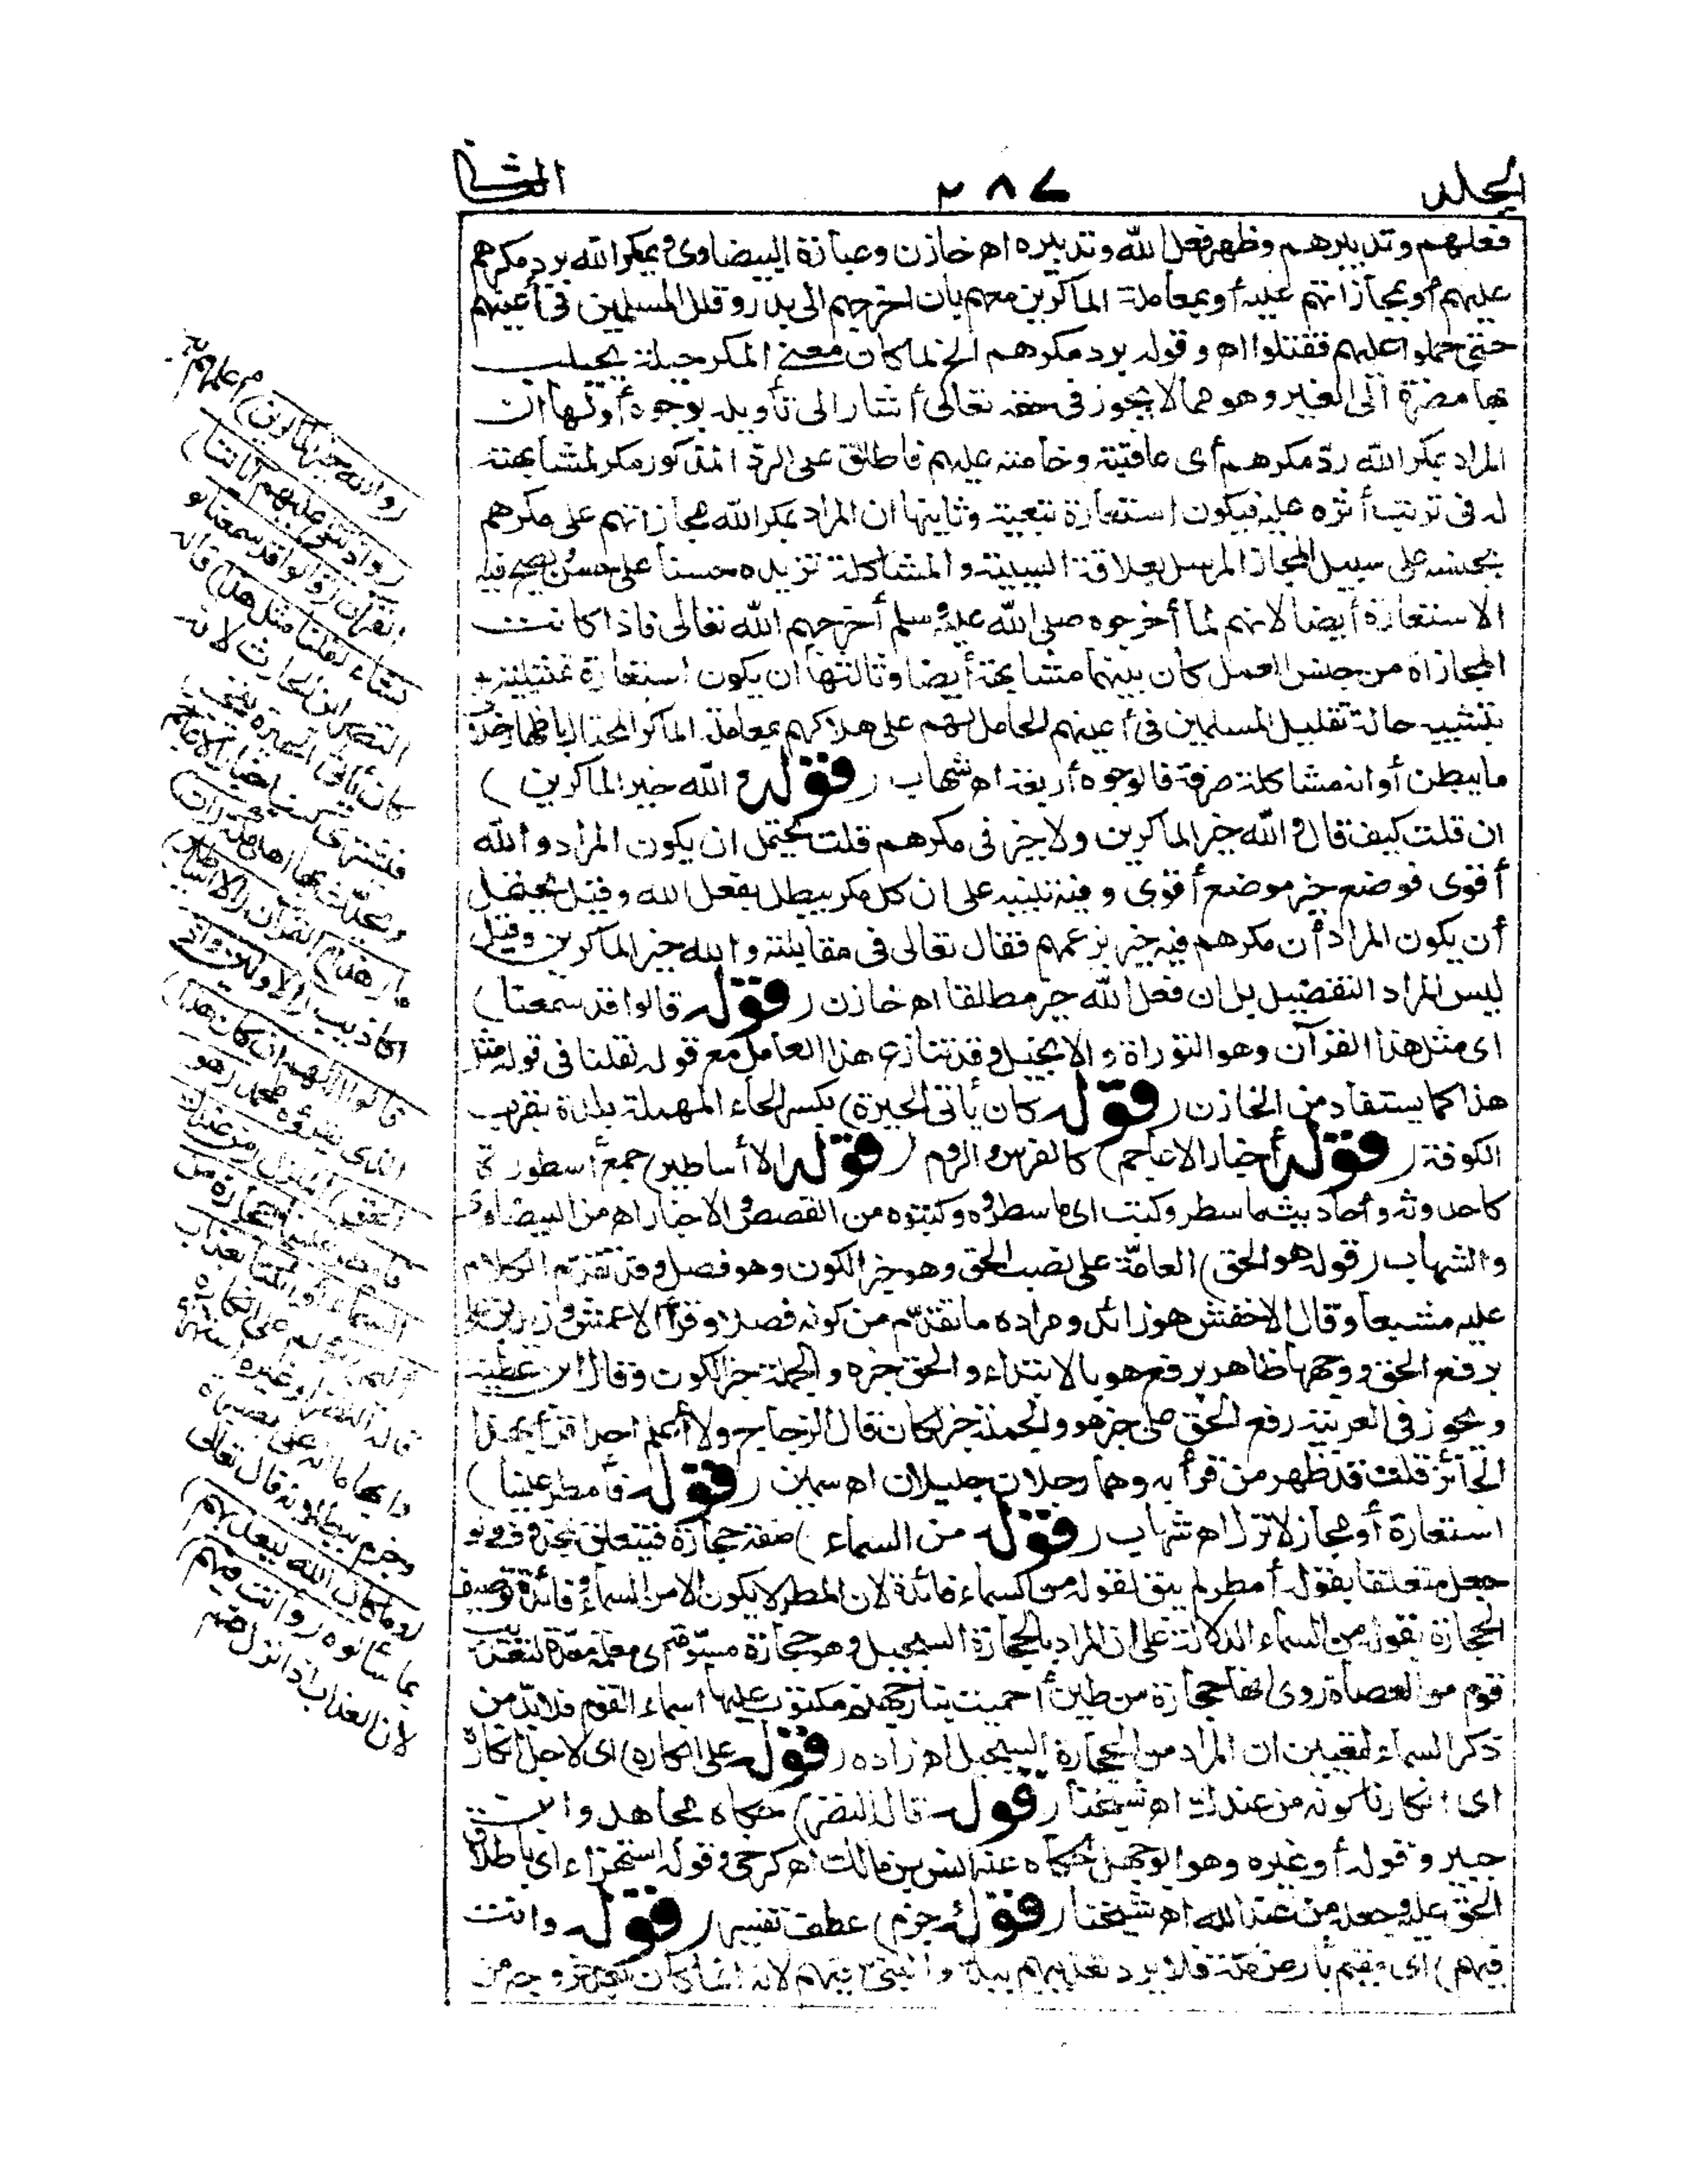 الجلد ٢٨٧ الثانى
فعلهم وتدبيرهم وظهر فعل الله وتدبيره اه خازن وعبارة البيضاوى ويمكر الله برد مكرهم
عليهم أو بمجازاتهم عليه أو بمعاملة الماكرين معهم بان اخرجهم الى بدر وقلل المسلمين فى أعينهم
حتى حملوا عليهم فقتلوا اه وقوله برد مكرهم الخ لما كان معنى المكر حيلة يجلب
بها مضرة الى الغير وهو مما لا يجوز فى حقه تعالى أشار الى تأويله بوجوه أولها ان
المراد بمكر الله ردّ مكرهم أى عاقبته وخامته عليهم فاطلق على الردّ المذكور مكر لمشابهته
له فى ترتب أثره عليه فيكون استعارة تبعية وثانيها ان المراد بمكر الله مجازاتهم على مكرهم
بجنسه على سبيل المجاز المرسل بعلاقة السببية والمشاكلة تزيده حسنا على حسن فيصح فيه
الاستعارة أيضا لانهم لما أخرجوه صلى الله عليه وسلم أخرجهم الله تعالى فاذا كانت
المجازاة من جنس العمل كان بينهما مشابهة أيضا وثالثها ان يكون استعارة تمثيلية
بتشبيه حالة تقليل المسلمين فى أعينهم الحامل لهم على هلاكهم بمعاملة الماكر المحتال باظهار خلاف
ما يبطن أو انه مشاكلة صرفة فالوجوه أربعة اه شهاب (قوله والله خير الماكرين)
ان قلت كيف قال والله خير الماكرين ولا خير فى مكرهم قلت يحتمل ان يكون المراد والله
أقوى فوضع خير موضع أقوى وفيه تنبيه على ان كل مكر يبطل بفعل الله وقيل يحتمل
أن يكون المراد أن مكرهم فيه خير بزعمهم فقال تعالى فى مقابلته والله خير الماكرين وقيل
ليس المراد التفضيل بل ان فعل الله خير مطلقا اه خازن (قوله قالوا قد سمعنا)
اى مثل هذا القرآن وهو التوراة والانجيل وقد تنازع هذا العامل مع قوله لقلنا فى قوله مثل
هذا كما يستفاد من الخازن (قوله كان يأتى الحيرة) بكسر الحاء المهملة بلدة بقرب
الكوفة (قوله أخبار الاعاجم) كالفرس والروم (قوله الا أساطير) جمع أسطورة
كاحدوثة وأحاديث ما سطر وكتب اى ما سطروه وكتبوه من القصص والاخبار اه من البيضاوى
والشهاب (قوله هو الحق) العامّة على نصب الحق وهو خبر الكون وهو فصل وقد تقدّم الكلام
عليه مشبعا وقال الاخفش هو زائد ومراده ما تقدّم من كونه فصلا وقرأ الاعمش وزيد بن على
برفع الحق ووجهها ظاهر برفع هو بالابتداء والحق خبره والجملة خبر الكون وقال ابن عطية
ويجوز فى العربية رفع الحق على خبر هو والجملة خبر لكان قال الزجاج ولا أعلم احدا قرأ بهذا
الجائز قلت قد ظهر من قرأ به وهما رجلان جليلان اه سمين (قوله فأمطر علينا)
استعارة أو مجاز لانزل اه شهاب (قوله من السماء) صفة حجارة فيتعلق بمحذوف ولو
جعل متعلقا بقوله أمطر لم يبق لقوله من السماء فائدة لان المطر لا يكون الا من السماء وفائدة توصيف
الحجارة بقوله من السماء الدلالة على ان المراد بالحجارة السجيل وهو حجارة مسوّمة اى معلمة معدّة لتعذيب
قوم من العصاة روى انها حجارة من طين أحميت بنار جهنم مكتوب عليها اسماء القوم فلا بدّ من
ذكر السماء لتعيين ان المراد من الحجارة السجيل اه زاده (قوله على انكاره) اى لاجل انكاره
اى انكارنا كونه من عندك اه شيخنا (قوله قاله النضر) حكاه مجاهد وابن
جبير وقوله أو غيره وهو أبو جهل حكاه عنه انس بن مالك اه كرخى وقوله استهزاء اى باطلاق
الحق عليه وجعله من عند الله اه شيخنا (قوله وجزم) عطف تفسير (قوله وانت
فيهم) اى مقيم بأرض مكة فلا يرد تعذيبهم ببدر والنبىّ فيهم لانه انما كان بعد خروجه من
(والله خير الماكرين) أعلمهم به
(واذا تتلى عليهم آياتنا)
القرآن (قالوا قد سمعنا لو
نشاء لقلنا مثل هذا) قاله
النضر ابن الحارث لانه
كان يأتى الحيرة يتجر
فيشترى كتب أخبار الاعاجم
ويحدّث بها أهل مكة (ان)
ما (هذا) القرآن (الا أساطير)
أكاذيب (الاولين واذ
قالوا اللهم ان كان هذا)
الذى يقرؤه محمد (هو
الحق) المنزل (من عندك
فأمطر علينا حجارة من
السماء أو ائتنا بعذاب
أليم) مؤلم على انكاره
قاله النضر أو غيره استهزاء
وايهاما انه على بصيرة
وجزم ببطلانه قال تعالى
(وما كان الله ليعذبهم)
بما سألوه (وانت فيهم)
لان العذاب اذا نزل عمّ